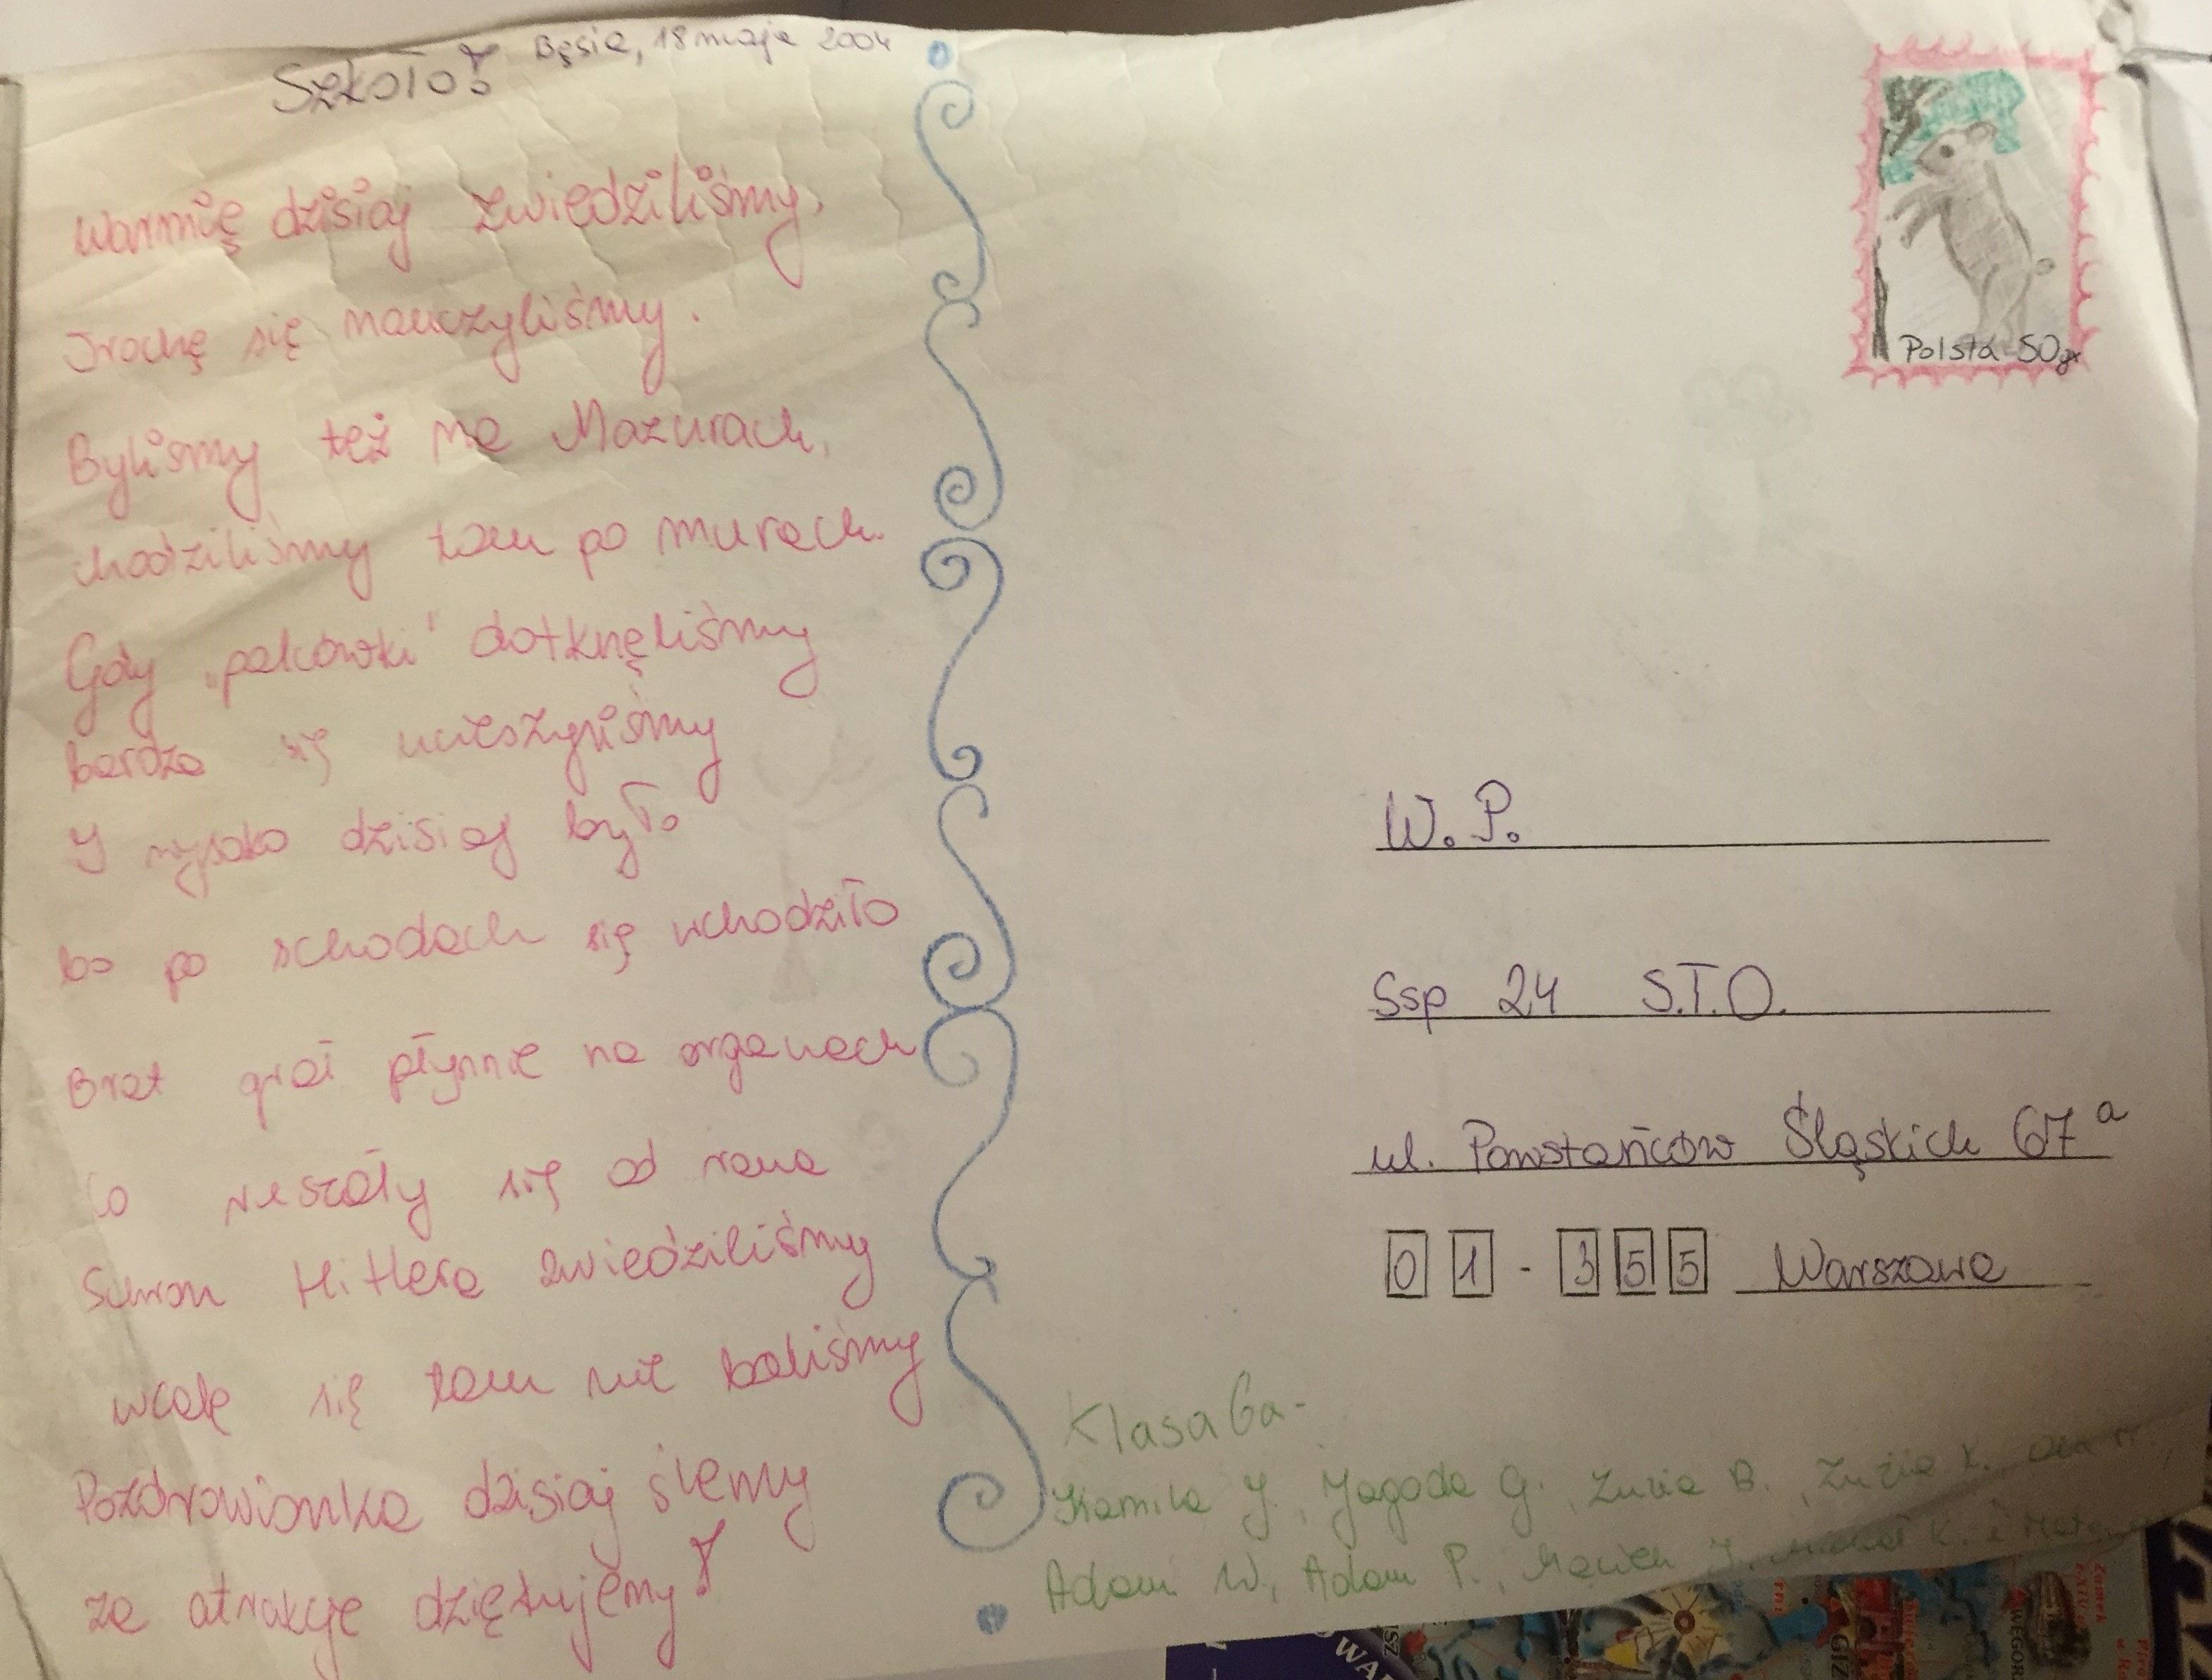 Bęsia, 18 maja 2004
Szkoło!
Warmię dzisiaj zwiedziliśmy,
Trochę się nauczyliśmy.
Byliśmy też na Mazurach,
chodziliśmy tam po murach.
Gdy „palcówki" dotknęliśmy
bardzo się ucieszyliśmy
I wysoko dzisiaj było
bo po schodach się wchodziło
Brat grał płynnie na organach
co ruszały się od rana
Schron Hitlera zwiedziliśmy
wcale się tam nie baliśmy
Pozdrowionka dzisiaj ślemy
za atrakcje dziękujemy!
Polska 50gr
W. P.
Ssp 24 S.T.O.
ul. Powstańców Śląskich 67a
01-355 Warszawa
Klasa 6a-
Kamila J., Jagoda G., Zuzia B., Zuzia K., Ola
Adam W., Adam P., Maciek J., Michał K. i